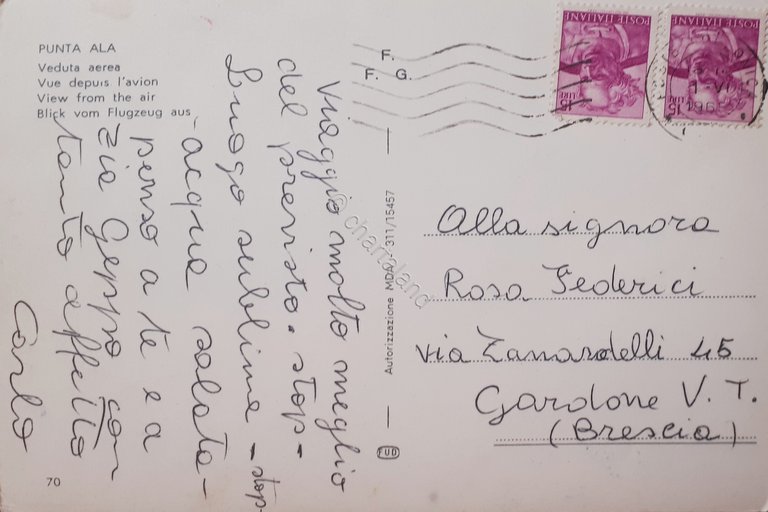 PUNTA ALA
Veduta aerea
Vue depuis l'avion
View from the air
Blick vom Flugzeug aus
F.
F. G.
POSTE ITALIANE
LIRE 15
POSTE ITALIANE
LIRE 15
1 VI
196
Viaggio molto meglio
del previsto. stop-
Luogo sublime - stop-
- acqua salata -
penso a te e a
zia Geppo con
tanto affetto
Carlo
Autorizzazione MDA 311/15457
© chartaland
Alla signora
Rosa Federici
via Zanardelli 45
Gardone V. T.
(Brescia)
FUD
70